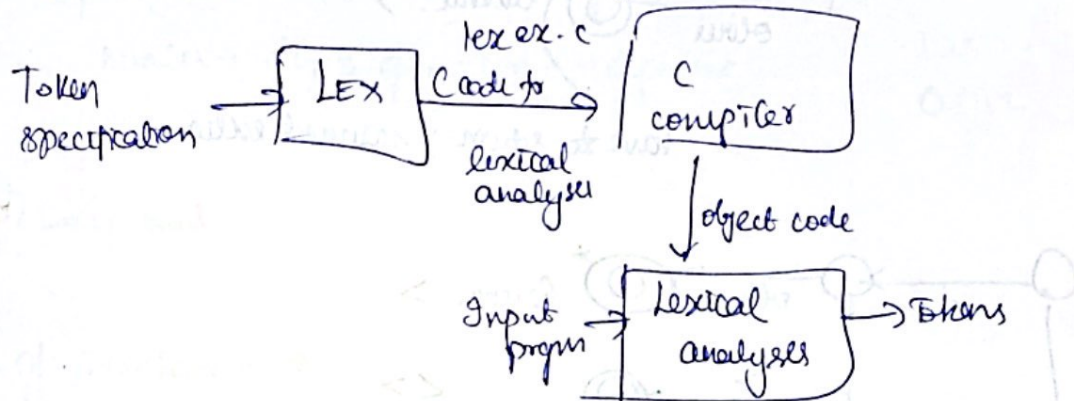 Token
specification
LEX
lexex.c
C code for
lexical
analyses
C
compiler
object code
Input
prgm
Lexical
analyses
Tokens